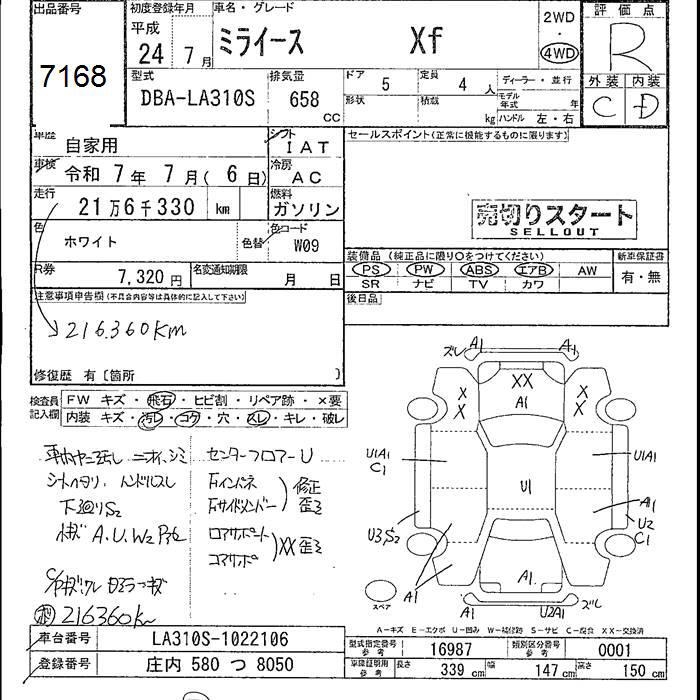 出品番号 初度登録年月 車名・グレード 評価点
7168
平成 24年 7月
ミライース Xf
2WD・4WD
R
型式 排気量 ドア 定員 ディーラー・並行
DBA-LA310S 658 CC 5 4人
形状 積載 kg モデル年式 年
ハンドル 左・右
外装 内装
C D
車歴 自家用 シフト IAT
車検 令和 7年 7月( 6日) 冷房 AC
走行 21万6千330 km 燃料 ガソリン
色 ホワイト 色替 色コード W09
R券 7,320円 名変通知期限 月 日
セールスポイント(正常に機能するものに限ります)
売切りスタート
SELLOUT
装備品(純正品に限り○をつけてください) 新車保証書
PS PW ABS エアB AW 有・無
SR ナビ TV カワ
後日品
注意事項申告欄(不具合内容等は具体的に記入して下さい)
216360Km
修復歴 有〔箇所 〕
検査員記入欄
FW キズ・飛石・ヒビ割・リペア跡・×要
内装 キズ・汚レ・コゲ・穴・スレ・キレ・破レ
センターフロアーU
ニオイ、シミ
ハンドルスレ
下廻りS2
A.U.W2
Fインパネ
Fサイドメンバー
修正 歪ミ
コアサポート
XX歪ミ
216360Km
ズレ A1 A1
X X XX X X
A1
U1A1 C1 U1 U1A1
A1
U3,S2 U2 C1
A1 A1
スペア
A1 U2A1 ズレ
A-キズ E-エクボ U-凹み W-補修跡 S-サビ C-腐食 XX-交換済
車台番号 LA310S-1022106
登録番号 庄内 580 つ 8050
型式指定番号 参考 16987 類別区分番号 参考 0001
車庫証明用 参考 長さ 339 cm 幅 147 cm 高さ 150 cm